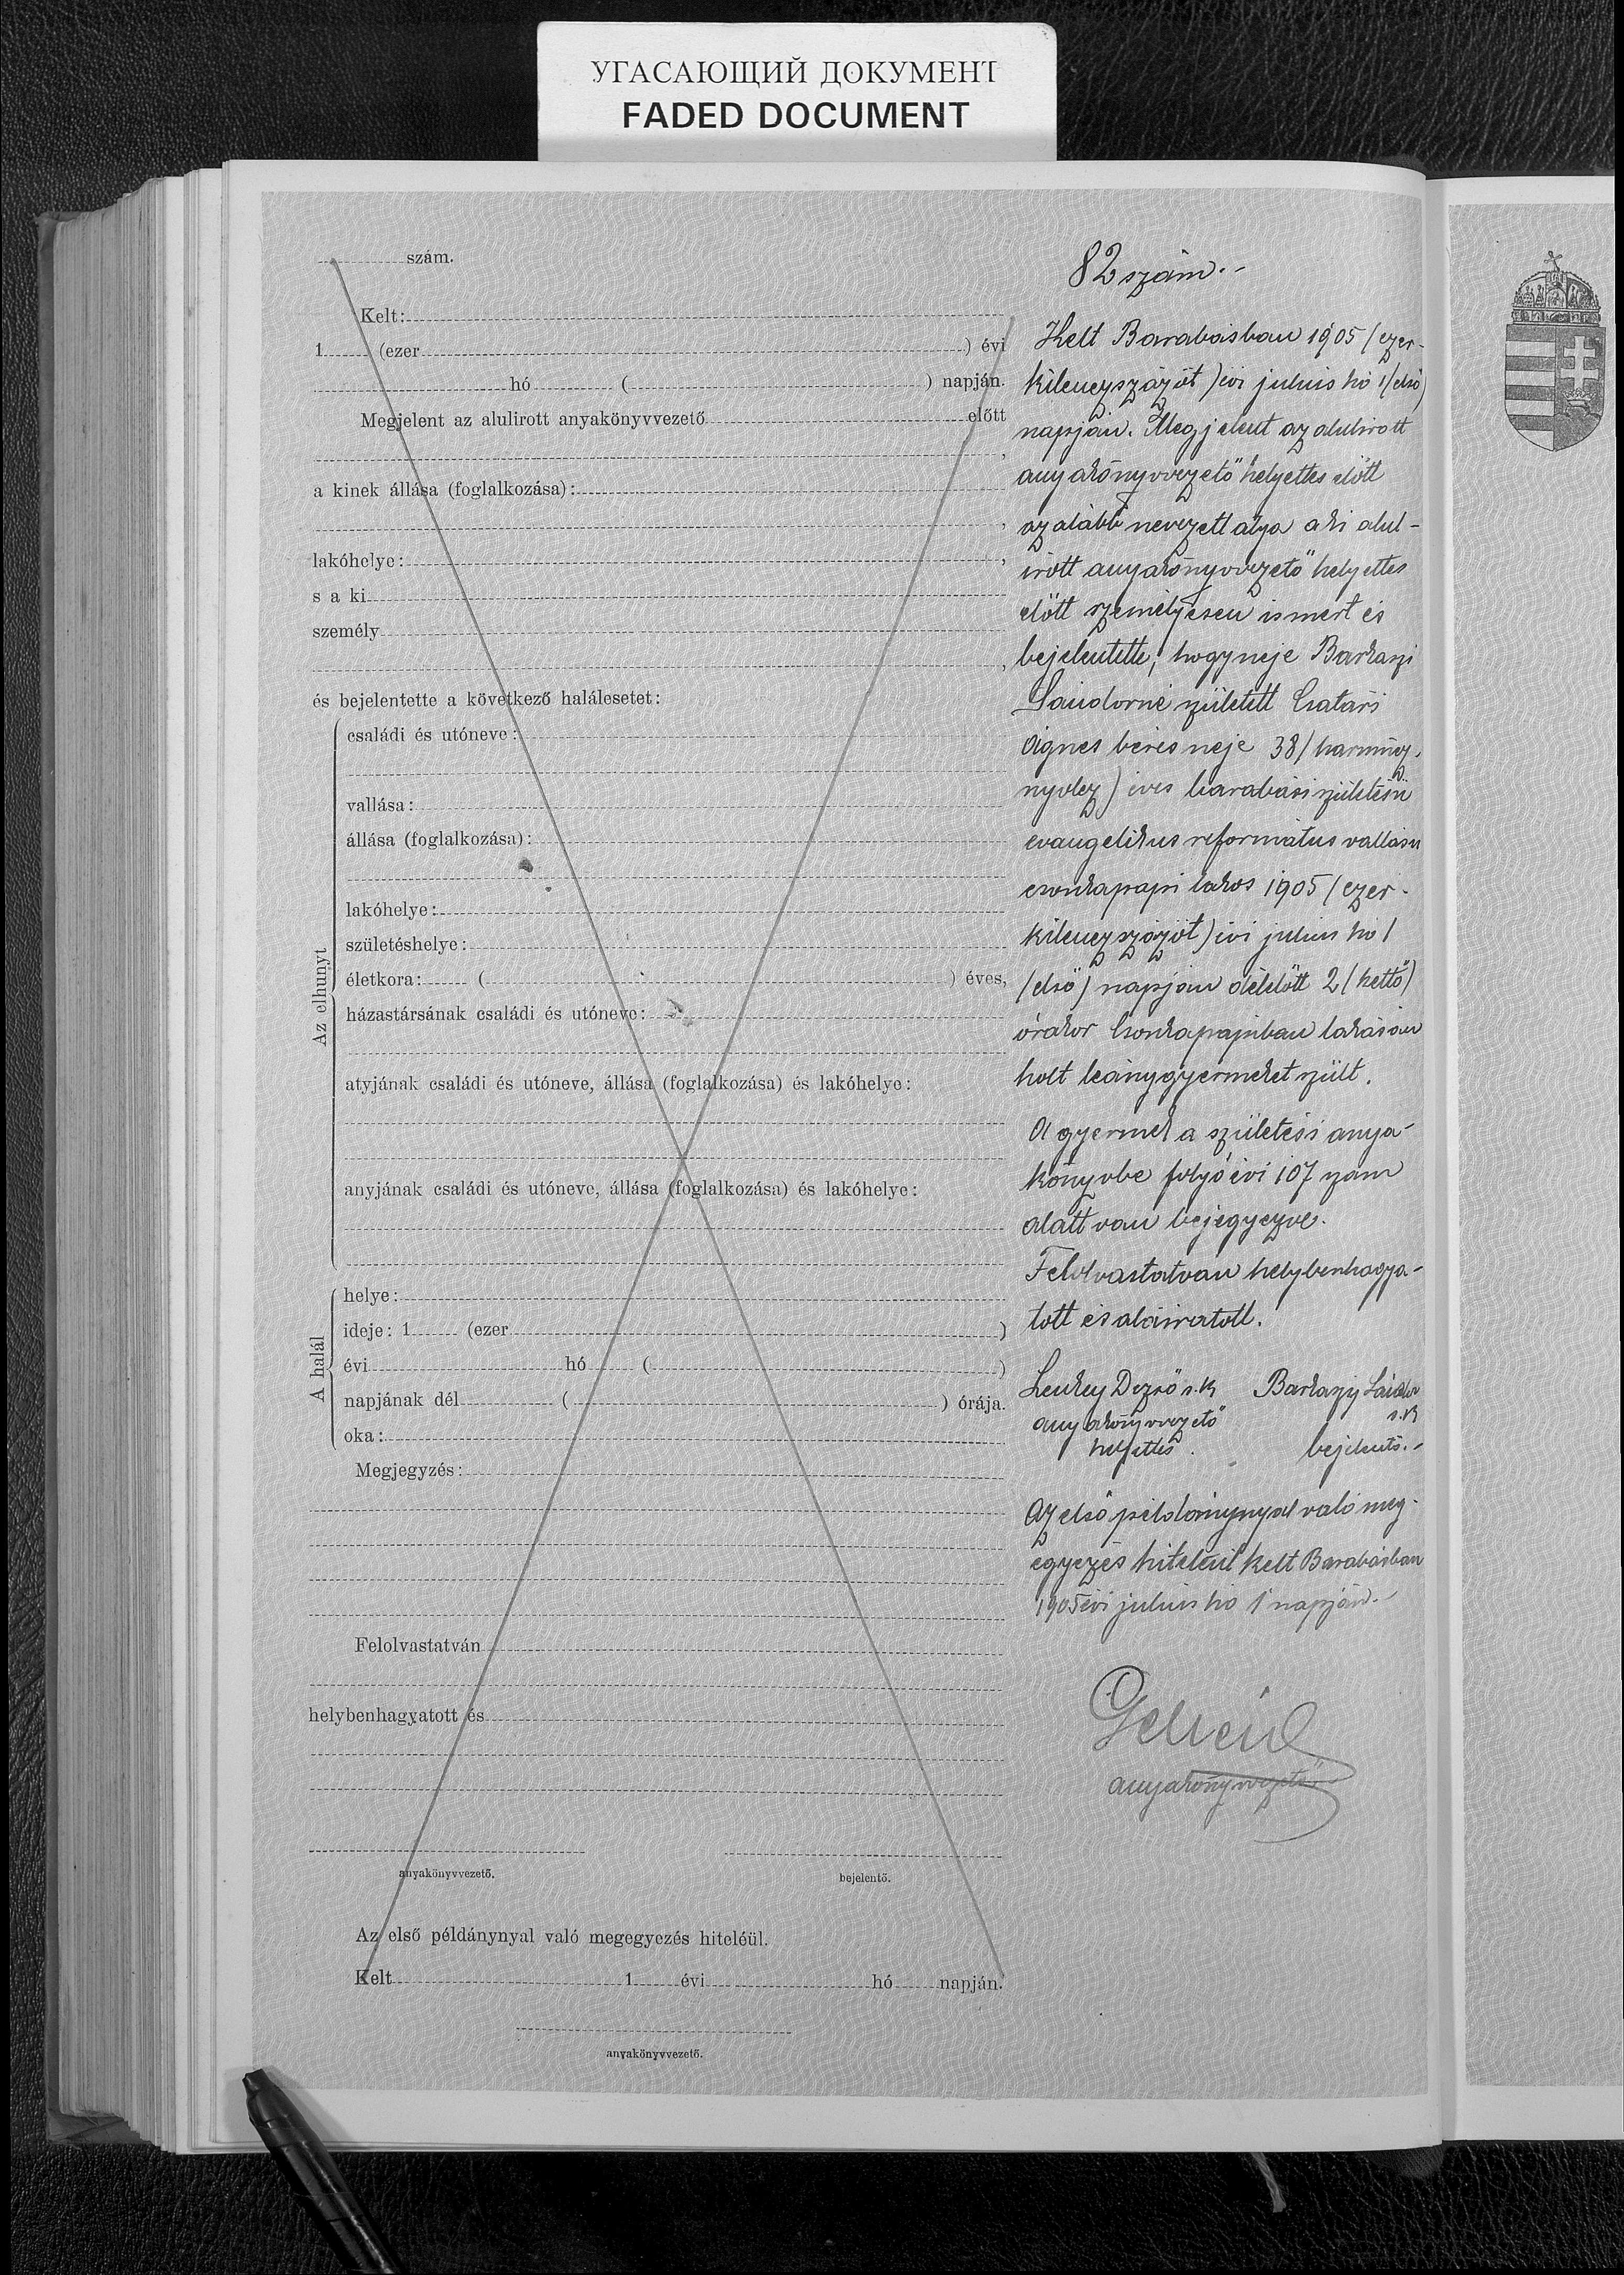 УГАСАЮЩИЙ ДОКУМЕНТ
FADED DOCUMENT
szám.
Kelt:
1 (ezer ) évi
hó ( ) napján.
Megjelent az alulirott anyakönyvvezető előtt
,
a kinek állása (foglalkozása):
,
lakóhelye: ,
s a ki
személy
,
és bejelentette a következő halálesetet:
Az elhunyt
családi és utóneve:
vallása:
állása (foglalkozása):
lakóhelye:
születéshelye:
életkora: ( ) éves,
házastársának családi és utóneve:
atyjának családi és utóneve, állása (foglalkozása) és lakóhelye:
anyjának családi és utóneve, állása (foglalkozása) és lakóhelye:
A halál
helye:
ideje: 1 (ezer )
évi hó ( )
napjának dél ( ) órája.
oka:
Megjegyzés:
Felolvastatván
helybenhagyatott és
anyakönyvvezető. bejelentő.
Az első példánynyal való megegyezés hiteléül.
Kelt 1 évi hó napján.
anyakönyvvezető.
82 szám.-
Kelt Barabásban 1905 (ezer-
kilenczszázöt) évi julius hó 1 (első)
napján. Megjelent az alulirott
anyakönyvvezető helyettes előtt
az alább nevezett atya a ki alul-
irott anyakönyvvezető helyettes
előtt személyesen ismert és
bejelentette, hogy neje Barkaszi
Sándorné született Csatári
Ágnes béres neje 38 (harmincz-
nyolcz) éves barabási születésü
evangelikus református vallásu
csonkapapi lakos 1905 (ezer-
kilenczszázöt) évi julius hó 1
(első) napján délelőtt 2 (kettő)
órakor Csonkapapiban lakásán
holt leánygyermeket szült.
A gyermek a születési anya-
könyvbe folyó évi 107 szám
alatt van bejegyezve.
Felolvastatván helybenhagya-
tott és aláiratott.
Lenkey Dezső s.k Barkaszy Sándor
anyakönyvvezető s.k
helyettes. bejelentő.-
Az első példánynyal való meg-
egyezés hiteléül kelt Barabásban
1905 évi julius hó 1 napján.-
anyakönyvvezető